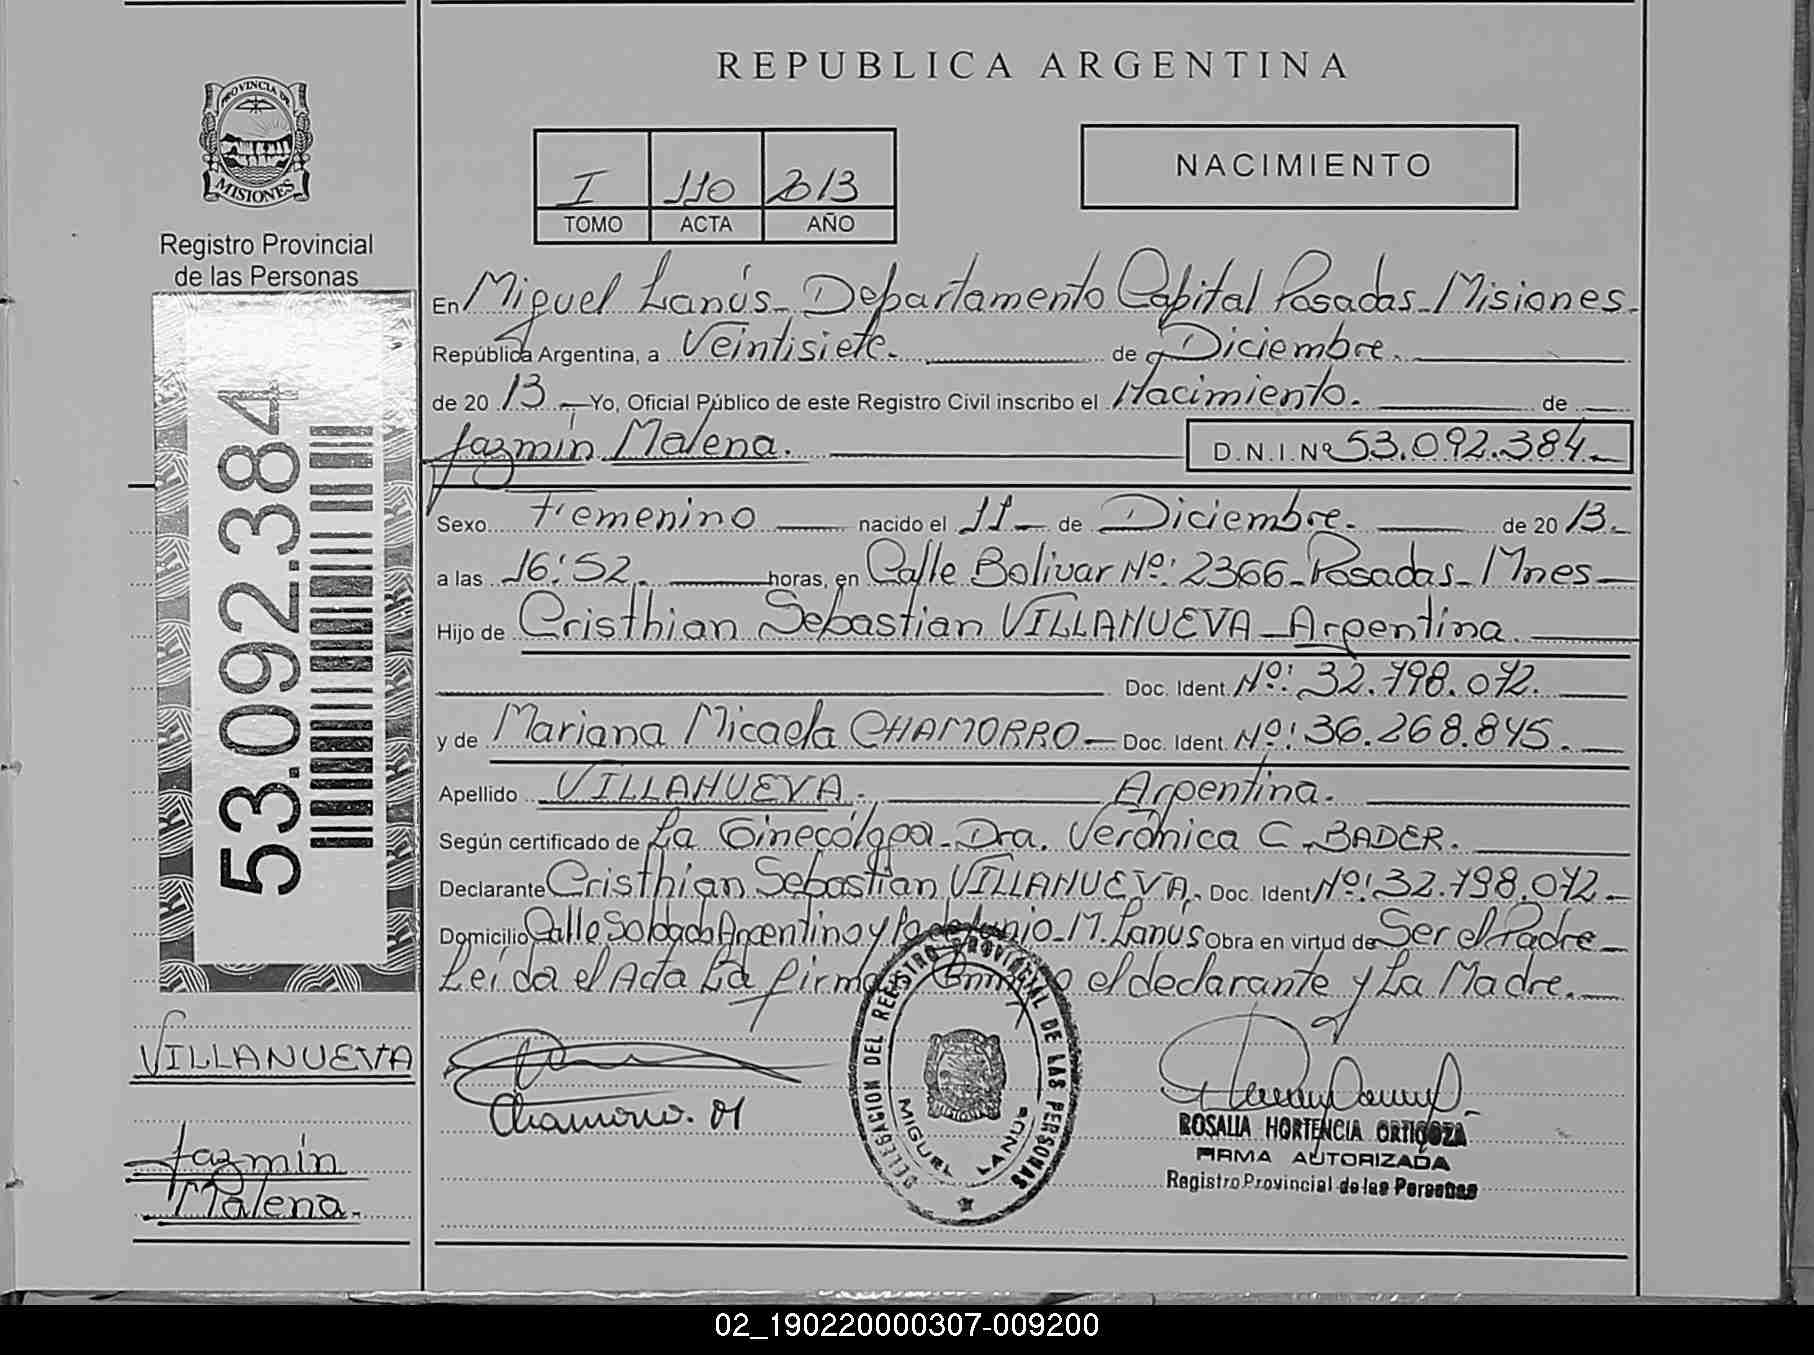 REPUBLICA ARGENTINA
PROVINCIA DE
MISIONES
Registro Provincial
de las Personas
I 110 2013
TOMO ACTA AÑO
NACIMIENTO
53.092.384
En Miguel Lanús - Departamento Capital Posadas - Misiones -
República Argentina, a Veintisiete. de Diciembre.
de 20 13 Yo, Oficial Público de este Registro Civil inscribo el Nacimiento. de
Jazmín Malena. D.N.I.Nº 53.092.384
Sexo Femenino nacido el 11 de Diciembre. de 20 13.
a las 16:52. horas, en Calle Bolivar Nº: 2366 - Posadas - Mnes
Hijo de Cristhian Sebastian VILLANUEVA - Argentina.
Doc. Ident. Nº: 32.798.072.
y de Mariana Micaela CHAMORRO - Doc. Ident. Nº: 36.268.845.
Apellido VILLANUEVA. Argentina.
Según certificado de La Ginecóloga - Dra. Verónica C. BADER.
Declarante Cristhian Sebastian VILLANUEVA. Doc. Ident Nº: 32.798.072
Domicilio Calle Soldado Argentino y de Junio - M. Lanús Obra en virtud de Ser el Padre
Leída el Acta La firma Conmigo el declarante y La Madre.
VILLANUEVA
Jazmín
Malena.
Chamorro. M
DELEGACION DEL REGISTRO PROVINCIAL DE LAS PERSONAS
MIGUEL LANUS
ROSALIA HORTENCIA ORTIGOZA
FIRMA AUTORIZADA
Registro Provincial de las Personas
02_190220000307-009200